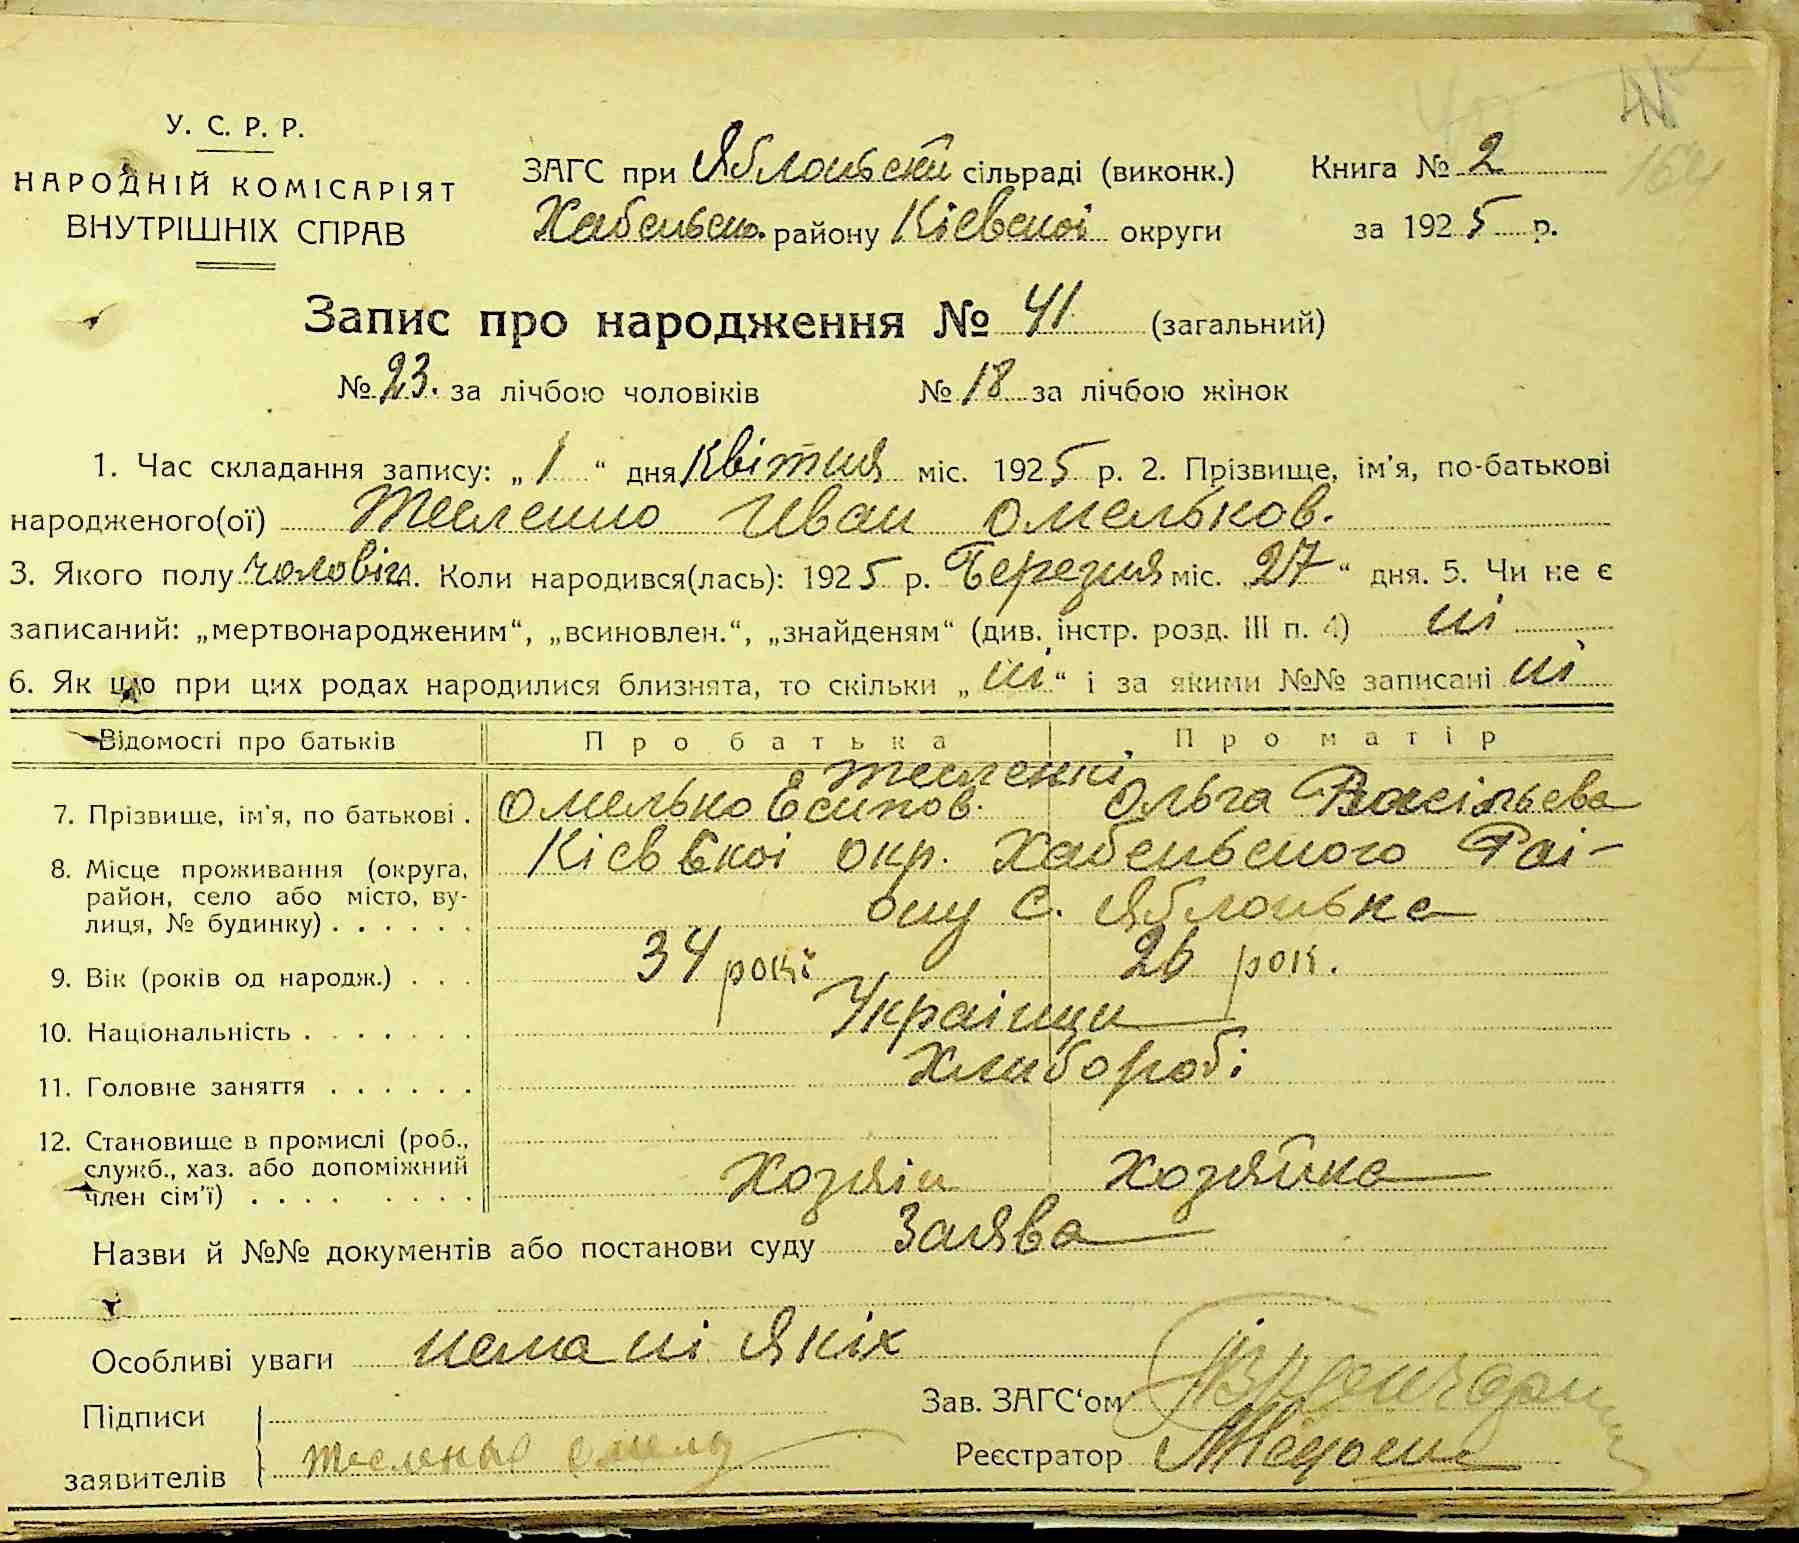 У. С. Р. Р.
НАРОДНІЙ КОМІСАРІЯТ
ВНУТРІШНІХ СПРАВ
ЗАГС при Яблоньскй сільраді (виконк.)
Хабеньско. району Кіевскоі округи
Книга № 2
за 1925 р.
41
164
Запис про народження № 41 (загальний)
№ 23. за лічбою чоловіків № 18 за лічбою жінок
1. Час складання запису: „ 1 “ дня Квітня міс. 1925 р. 2. Прізвище, ім'я, по-батькові
народженого(ої) Тесленко Иван Омельков.
3. Якого полу чоловіч. Коли народився(лась): 1925 р. Березня міс. 27 “ дня. 5. Чи не є
записаний: „мертвонародженим“, „всиновлен.“, „знайденям“ (див. інстр. розд. III п. 4) ні
6. Як що при цих родах народилися близнята, то скільки „ ні “ і за якими №№ записані ні
Відомості про батьків Про батька Про матір
Тесленкі
7. Прізвище, ім'я, по батькові . Омелько Есипов. Ольга Васільева
8. Місце проживання (округа, район, село або місто, ву-лиця, № будинку) . . . . . . Кіевскоі окр. Хабеньского Раі-
ону с. Яблонька
9. Вік (років од народж.) . . . 34 рокі 26 рок.
10. Національність . . . . . . . Украінци
11. Головне заняття . . . . . . Хлибороб:
12. Становище в промислі (роб., служб., хаз. або допоміжний член сім'ї) . . . . . . . . Хозяін Хозяйка
Назви й №№ документів або постанови суду Заява
Особливі уваги нема ні якіх
Підписи
заявителів
Зав. ЗАГС'ом
Реєстратор